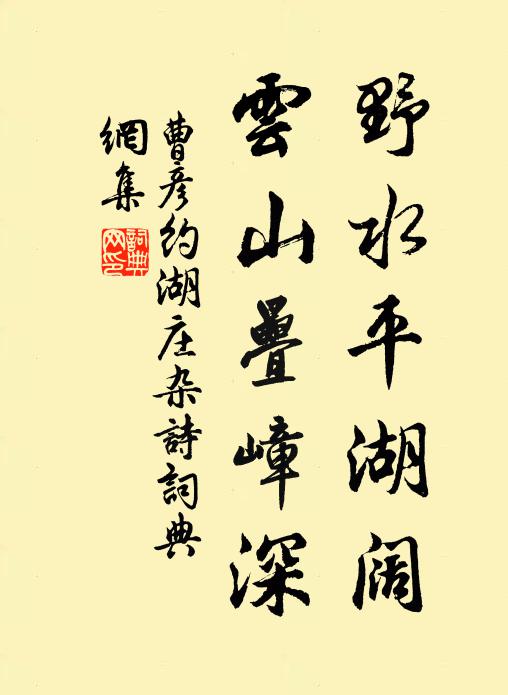 野水平湖阔
雲山疊嶂深
曹彦约湖庄杂詩詞典
網集
詞典
网印